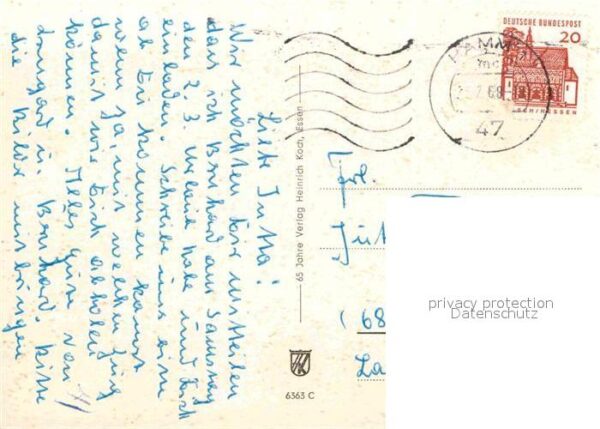 Liebe Jutta!
Wir möchten Dir mitteilen
dass ich Bernhard am Samstag
den 2. 3. Urlaub habe und Dich
einladen. Schreibe uns bitte
ob Du kommen kannst
wenn ja mit welchem Zug
damit wir Dich abholen
können. Alles gute von
Irmgard u. Bernhard. bitte
die Bilder mitbringen
65 Jahre Verlag Heinrich Koch, Essen
6363 C
DEUTSCHE BUNDESPOST
20
HAMM
68
47
Frl.
Jut
(68
La
privacy protection
Datenschutz